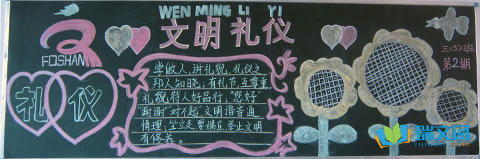 WEN MING LI YI
文明礼仪
FOSHAN
礼仪
三(3)班
第2期
学做人,讲礼貌,礼仪之
邦人知晓;有礼节,互尊重,
礼貌待人好品行,"您好"
"谢谢"对不起,文明语言通
情理;坐立走,要端庄,举止文明
有修养。
瑞文网